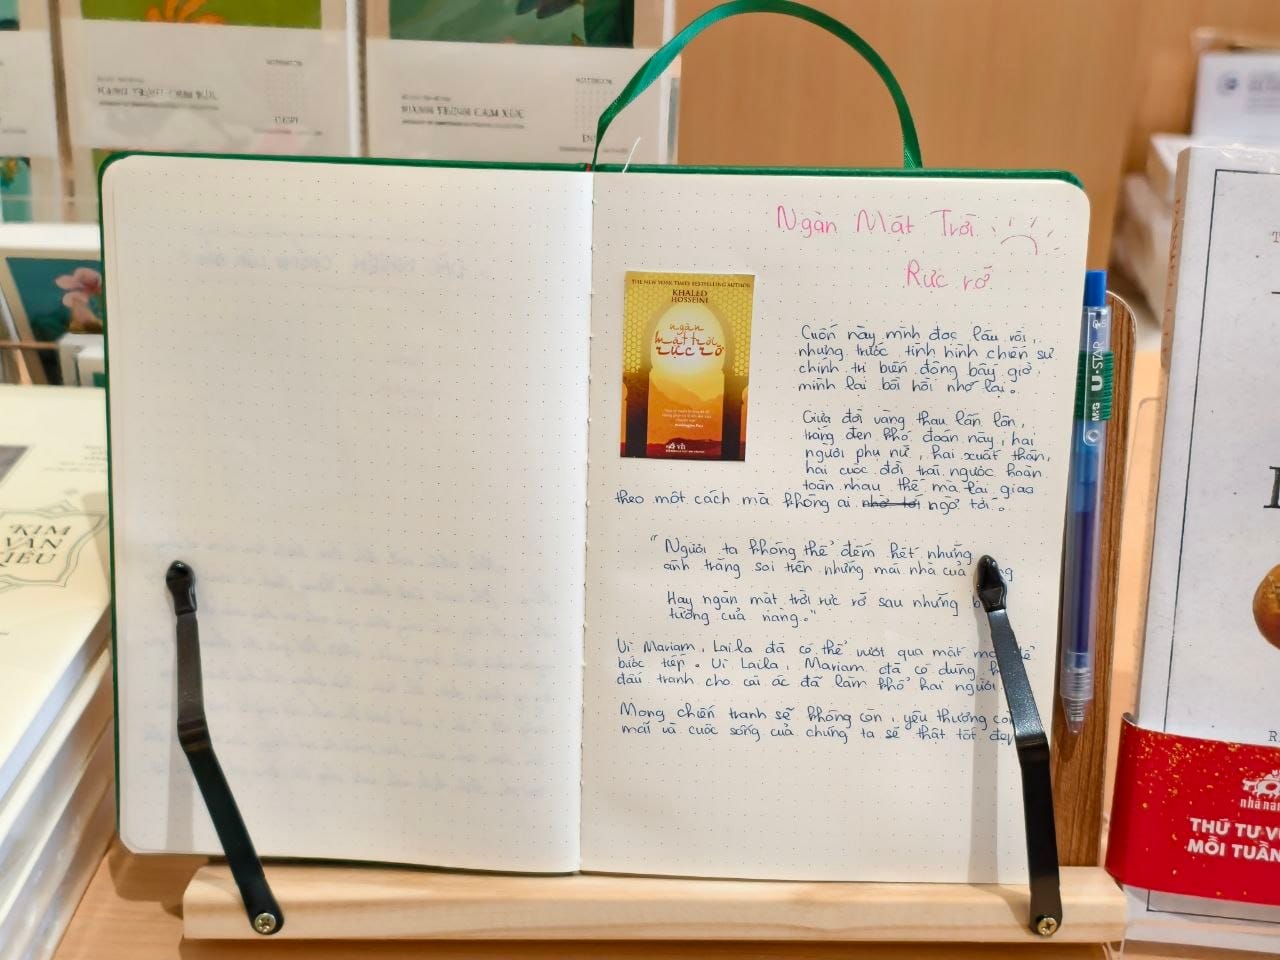 HÀNH TRÌNH CẢM XÚC
HÀNH TRÌNH CẢM XÚC
Ngàn Mặt Trời
Rực rỡ
THE NEW YORK TIMES BESTSELLING AUTHOR
KHALED
HOSSEINI
ngàn
mặt trời
rực rỡ
Cuốn này mình đọc lâu rồi,
nhưng trước tình hình chiến sự
chính trị biến động bây giờ,
mình lại bồi hồi nhớ lại.
Giữa đời vàng thau lẫn lộn,
trắng đen khó đoán này, hai
người phụ nữ, hai xuất thân,
hai cuộc đời trái ngược hoàn
toàn nhau thế mà lại giao
theo một cách mà không ai nhờ tới ngờ tới.
"Người ta không thể đếm hết những
ánh trăng soi trên những mái nhà của
Hay ngàn mặt trời rực rỡ sau những b
tường của nàng."
Vì Mariam, Laila đã có thể vượt qua mất m để
bước tiếp. Vì Laila, Mariam đã có dũng k
đấu tranh cho cái ác đã làm khổ hai người
Mong chiến tranh sẽ không còn, yêu thương còn
mãi và cuộc sống của chúng ta sẽ thật tốt đẹp
M&G U·STAR
KIM
VÂN
KIỀU
nhã nam
THỨ TƯ V
MỖI TUẦN